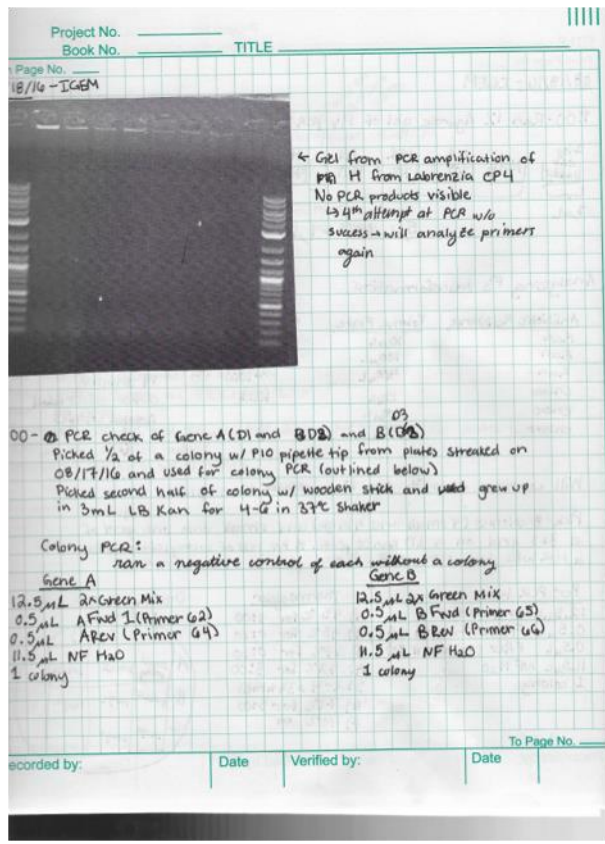 Project No.
Book No.
TITLE
Page No.
18/16 - IGEM
← Gel from PCR amplification of
H from Labrenzia CP4
No PCR products visible
↳ 4th attempt at PCR w/o
success → will analyze primers
again
00 - PCR check of Gene A (D1 and D2) and B (D3)
Picked 1/2 of a colony w/ P10 pipette tip from plates streaked on
08/17/16 and used for colony PCR (outlined below)
Picked second half of colony w/ wooden stick and grew up
in 3mL LB Kan for 4-6 in 37°C shaker
Colony PCR:
ran a negative control of each without a colony
Gene A
12.5 µL 2x Green Mix
0.5 µL A Fwd 1 (Primer 62)
0.5 µL A Rev (Primer 64)
11.5 µL NF H2O
1 colony
Gene B
12.5 µL 2x Green Mix
0.5 µL B Fwd (Primer 65)
0.5 µL B Rev (Primer 66)
11.5 µL NF H2O
1 colony
To Page No.
ecorded by:
Date
Verified by:
Date